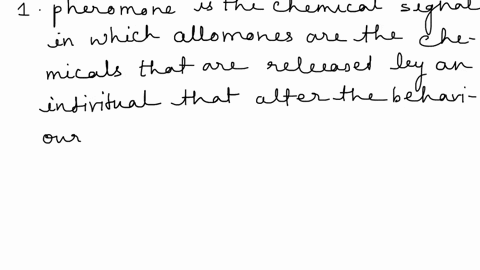 1. pheromone is the chemical signal
in which allomones are the che-
micals that are released by an
individual that alter the behavi-
our